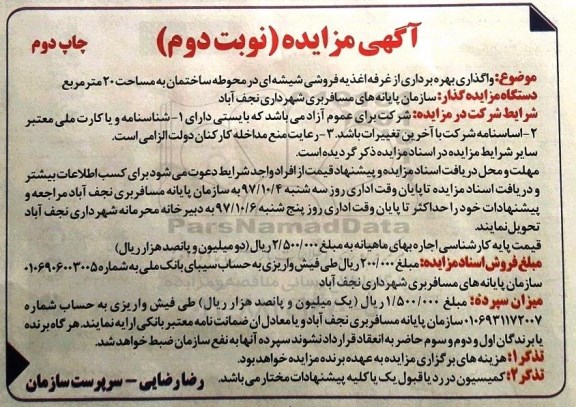 آگهی مزایده (نوبت دوم)
چاپ دوم
موضوع: واگذاری بهره برداری از غرفه اغذیه فروشی شیشه ای در محوطه ساختمان به مساحت ۲۰ متر مربع
دستگاه مزایده گذار: سازمان پایانه های مسافربری شهرداری نجف آباد
شرایط شرکت در مزایده: شرکت برای عموم آزاد می باشد که بایستی دارای ۱- شناسنامه و یا کارت ملی معتبر
۲- اساسنامه شرکت با آخرین تغییرات باشد. ۳- رعایت منع مداخله کارکنان دولت الزامی است.
سایر شرایط مزایده در اسناد مزایده ذکر گردیده است.
مهلت و محل دریافت اسناد مزایده و پیشنهاد قیمت از افراد واجد شرایط دعوت می شود برای کسب اطلاعات بیشتر
و دریافت اسناد مزایده تا پایان وقت اداری روز سه شنبه ۹۷/۱۰/۴ به سازمان پایانه مسافربری نجف آباد مراجعه و
پیشنهادات خود را حداکثر تا پایان وقت اداری روز پنج شنبه ۹۷/۱۰/۶ به دبیرخانه محرمانه شهرداری نجف آباد
تحویل نمایند.
ParsNamadData
قیمت پایه کارشناسی اجاره بهای ماهیانه به مبلغ ۲/۵۰۰/۰۰۰ ریال (دو میلیون و پانصد هزار ریال)
مبلغ فروش اسناد مزایده: مبلغ ۲۰۰/۰۰۰ ریال طی فیش واریزی به حساب سیبای بانک ملی به شماره ۰۱۰۶۹۰۶۰۰۳۰۰۵
سازمان پایانه های مسافربری شهرداری نجف آباد
میزان سپرده: مبلغ ۱/۵۰۰/۰۰۰ ریال (یک میلیون و پانصد هزار ریال) طی فیش واریزی به حساب شماره
۰۱۰۶۹۳۱۱۷۲۰۰۷ سازمان پایانه مسافربری نجف آباد و یا معادل ان ضمانت نامه معتبر بانکی ارایه نمایند. هر گاه برنده
یا برندگان اول و دوم و سوم حاضر به انعقاد قرارداد نشوند سپرده آنها به نفع سازمان ضبط خواهد شد.
تذکر۱: هزینه های برگزاری مزایده به عهده برنده مزایده خواهد بود.
تذکر۲: کمیسیون در رد یا قبول یک یا کلیه پیشنهادات مختار می باشد.
رضا رضایی – سرپرست سازمان